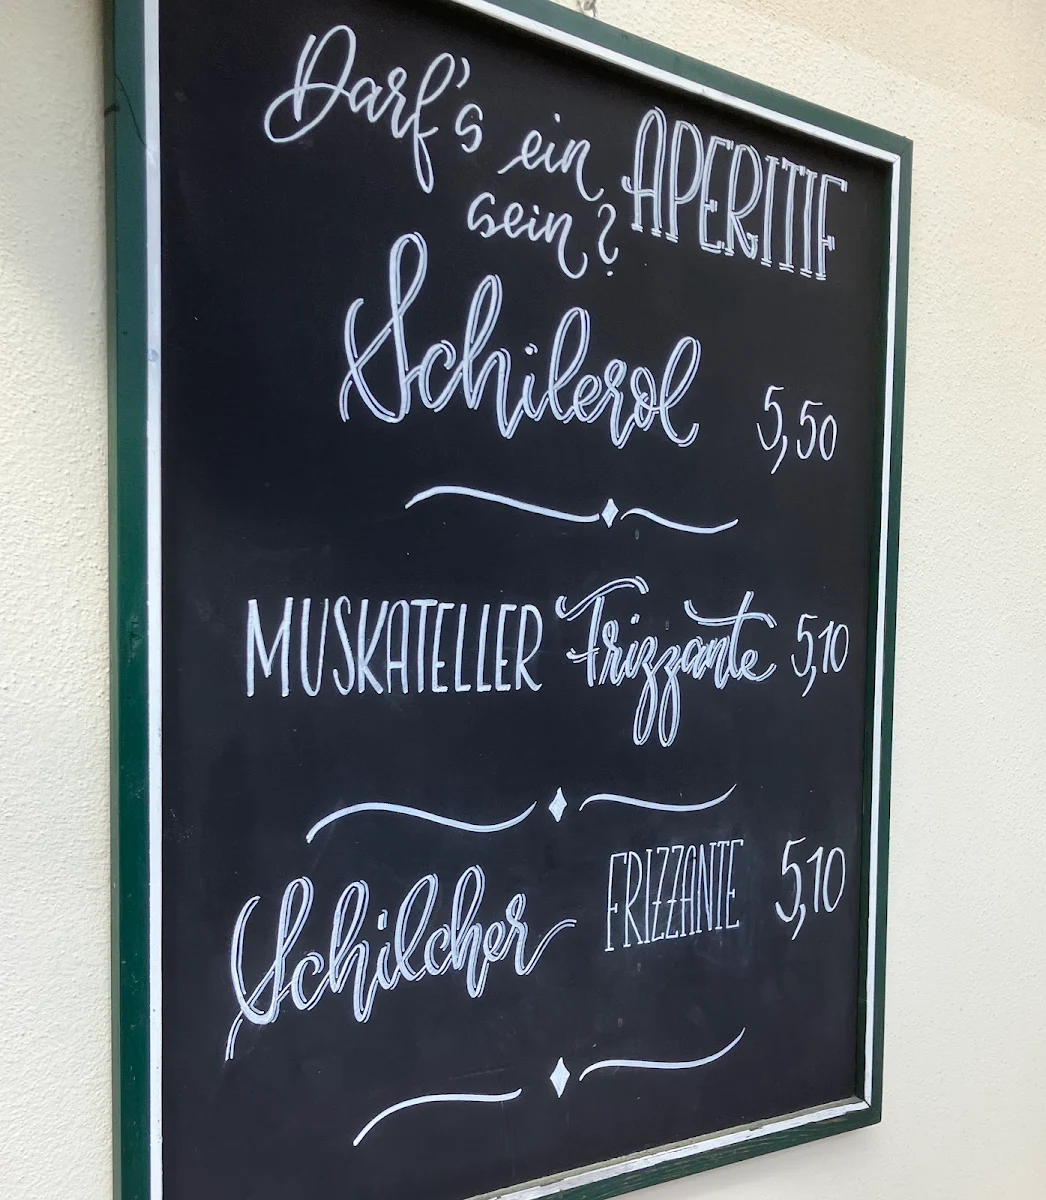 Darf's ein APERITIF
sein?
Schilerol 5,50
MUSKATELLER Frizzante 5,10
Schilcher FRIZZANTE 5,10